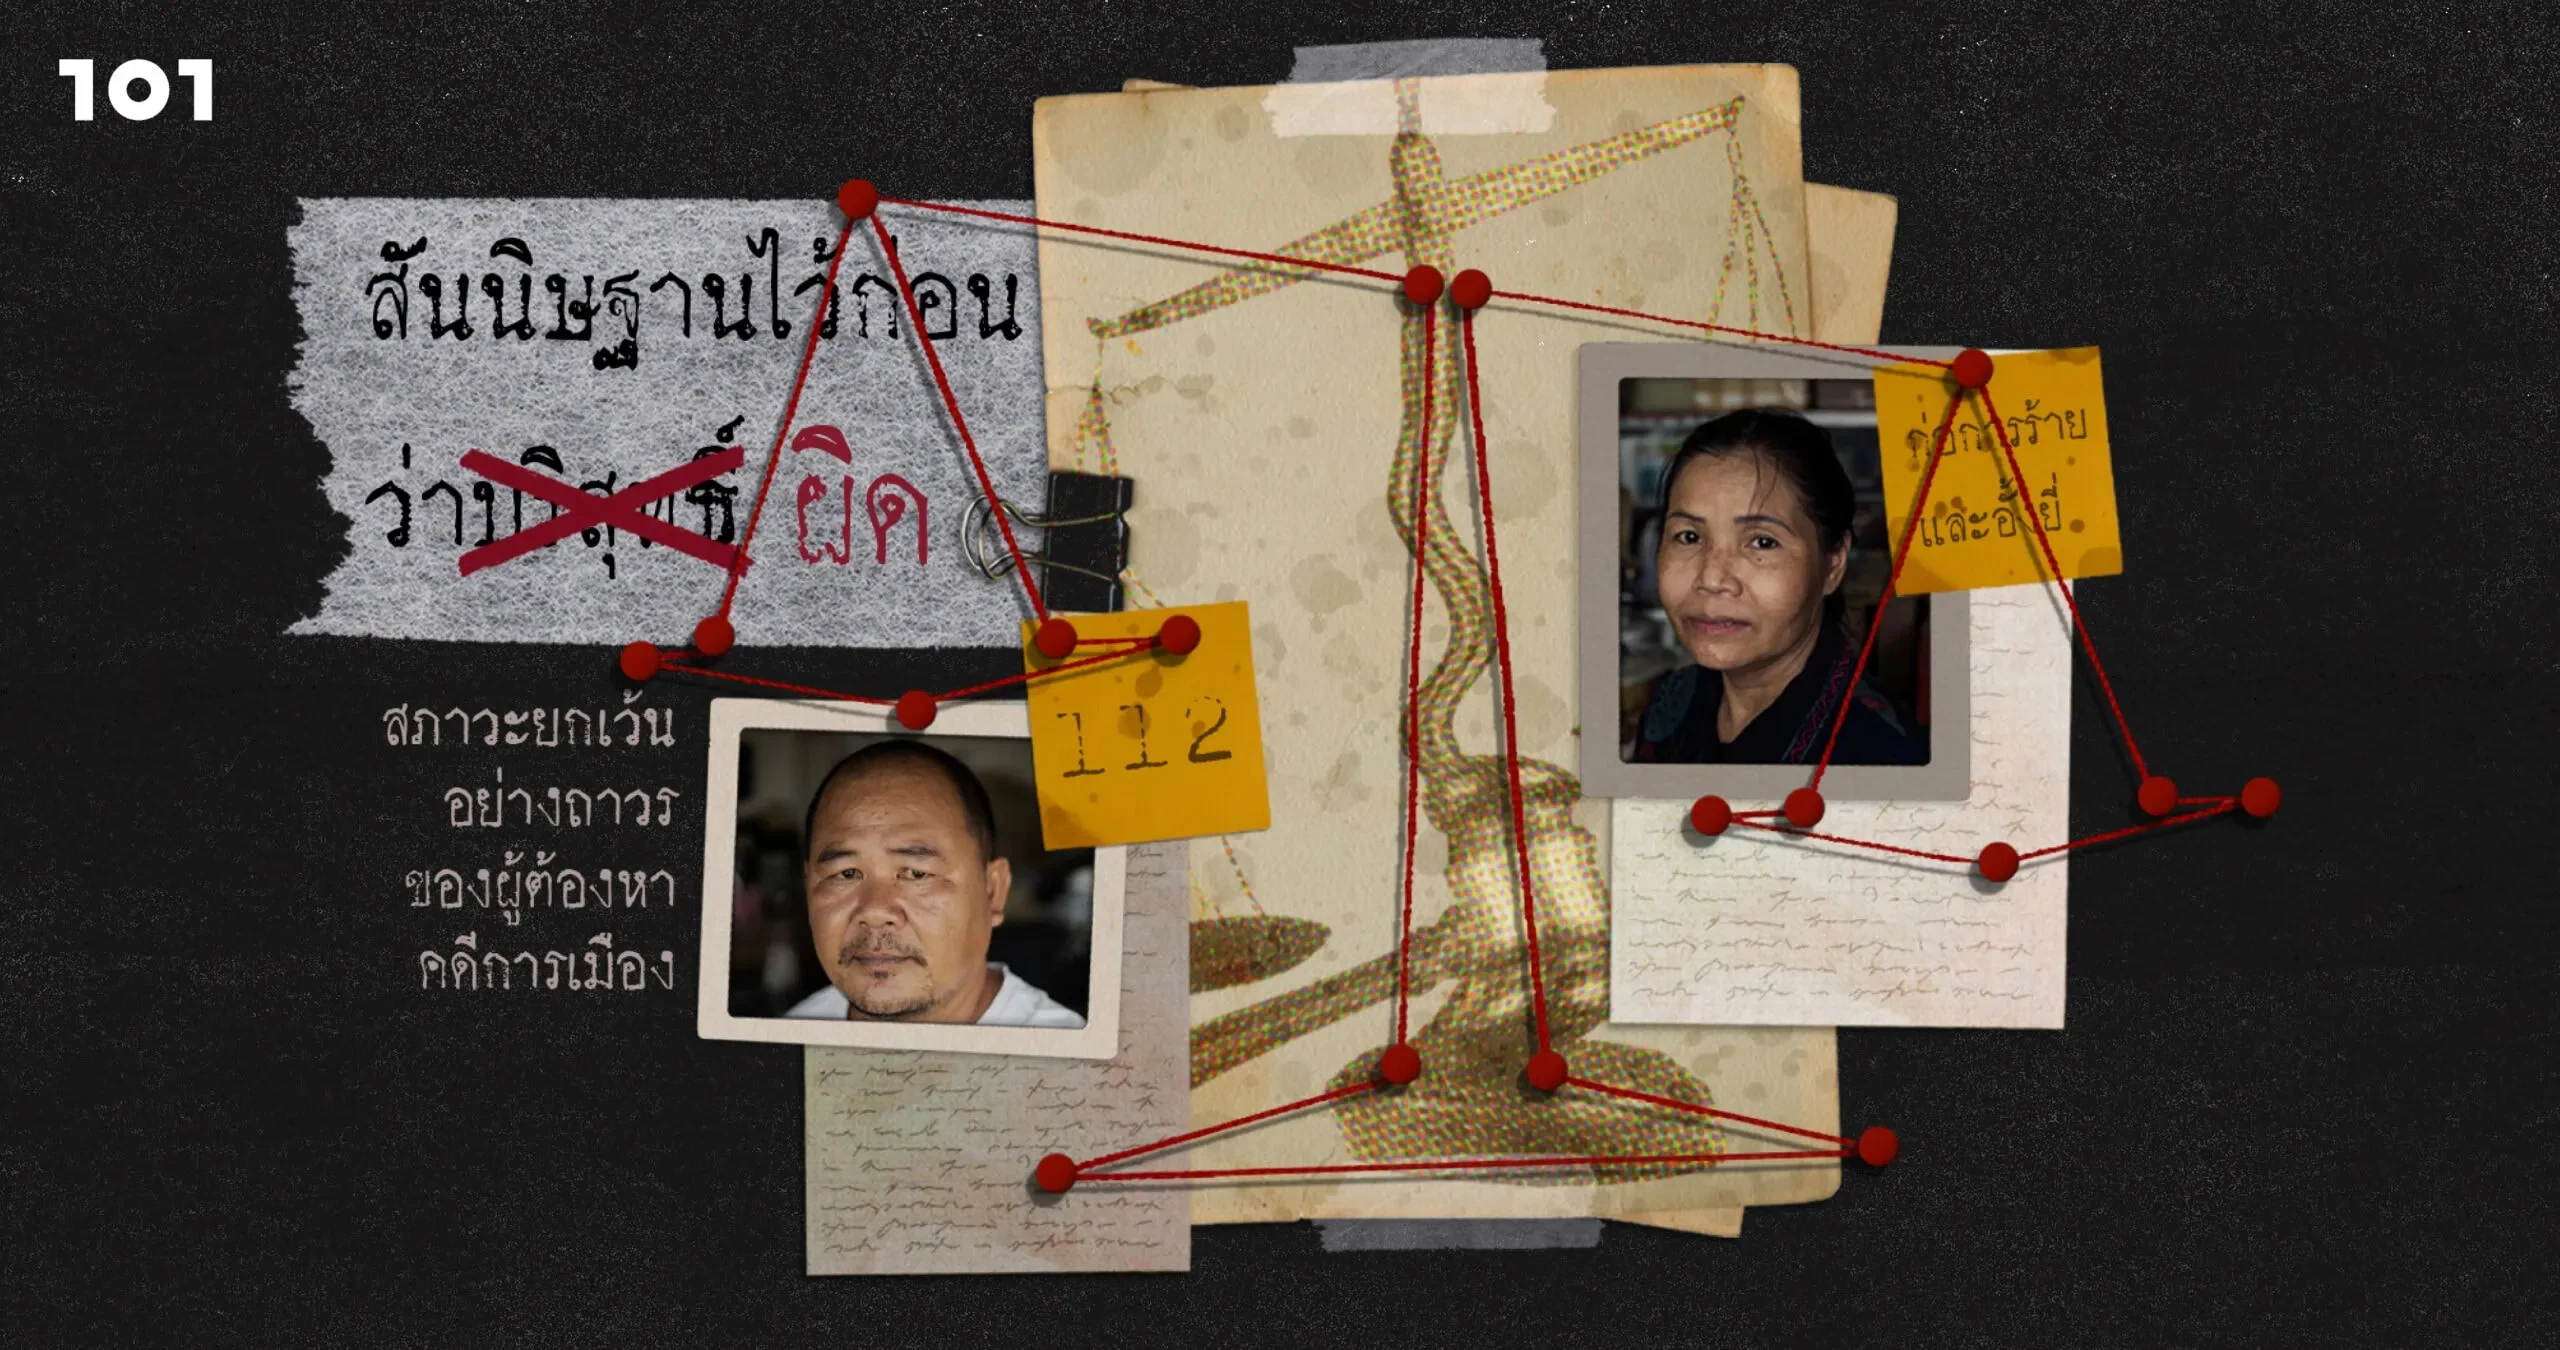 101
สันนิษฐานไว้ก่อน
ว่าบริสุทธิ์ ผิด
สภาวะยกเว้น
อย่างถาวร
ของผู้ต้องหา
คดีการเมือง
112
ก่อการร้าย
และอั้งยี่